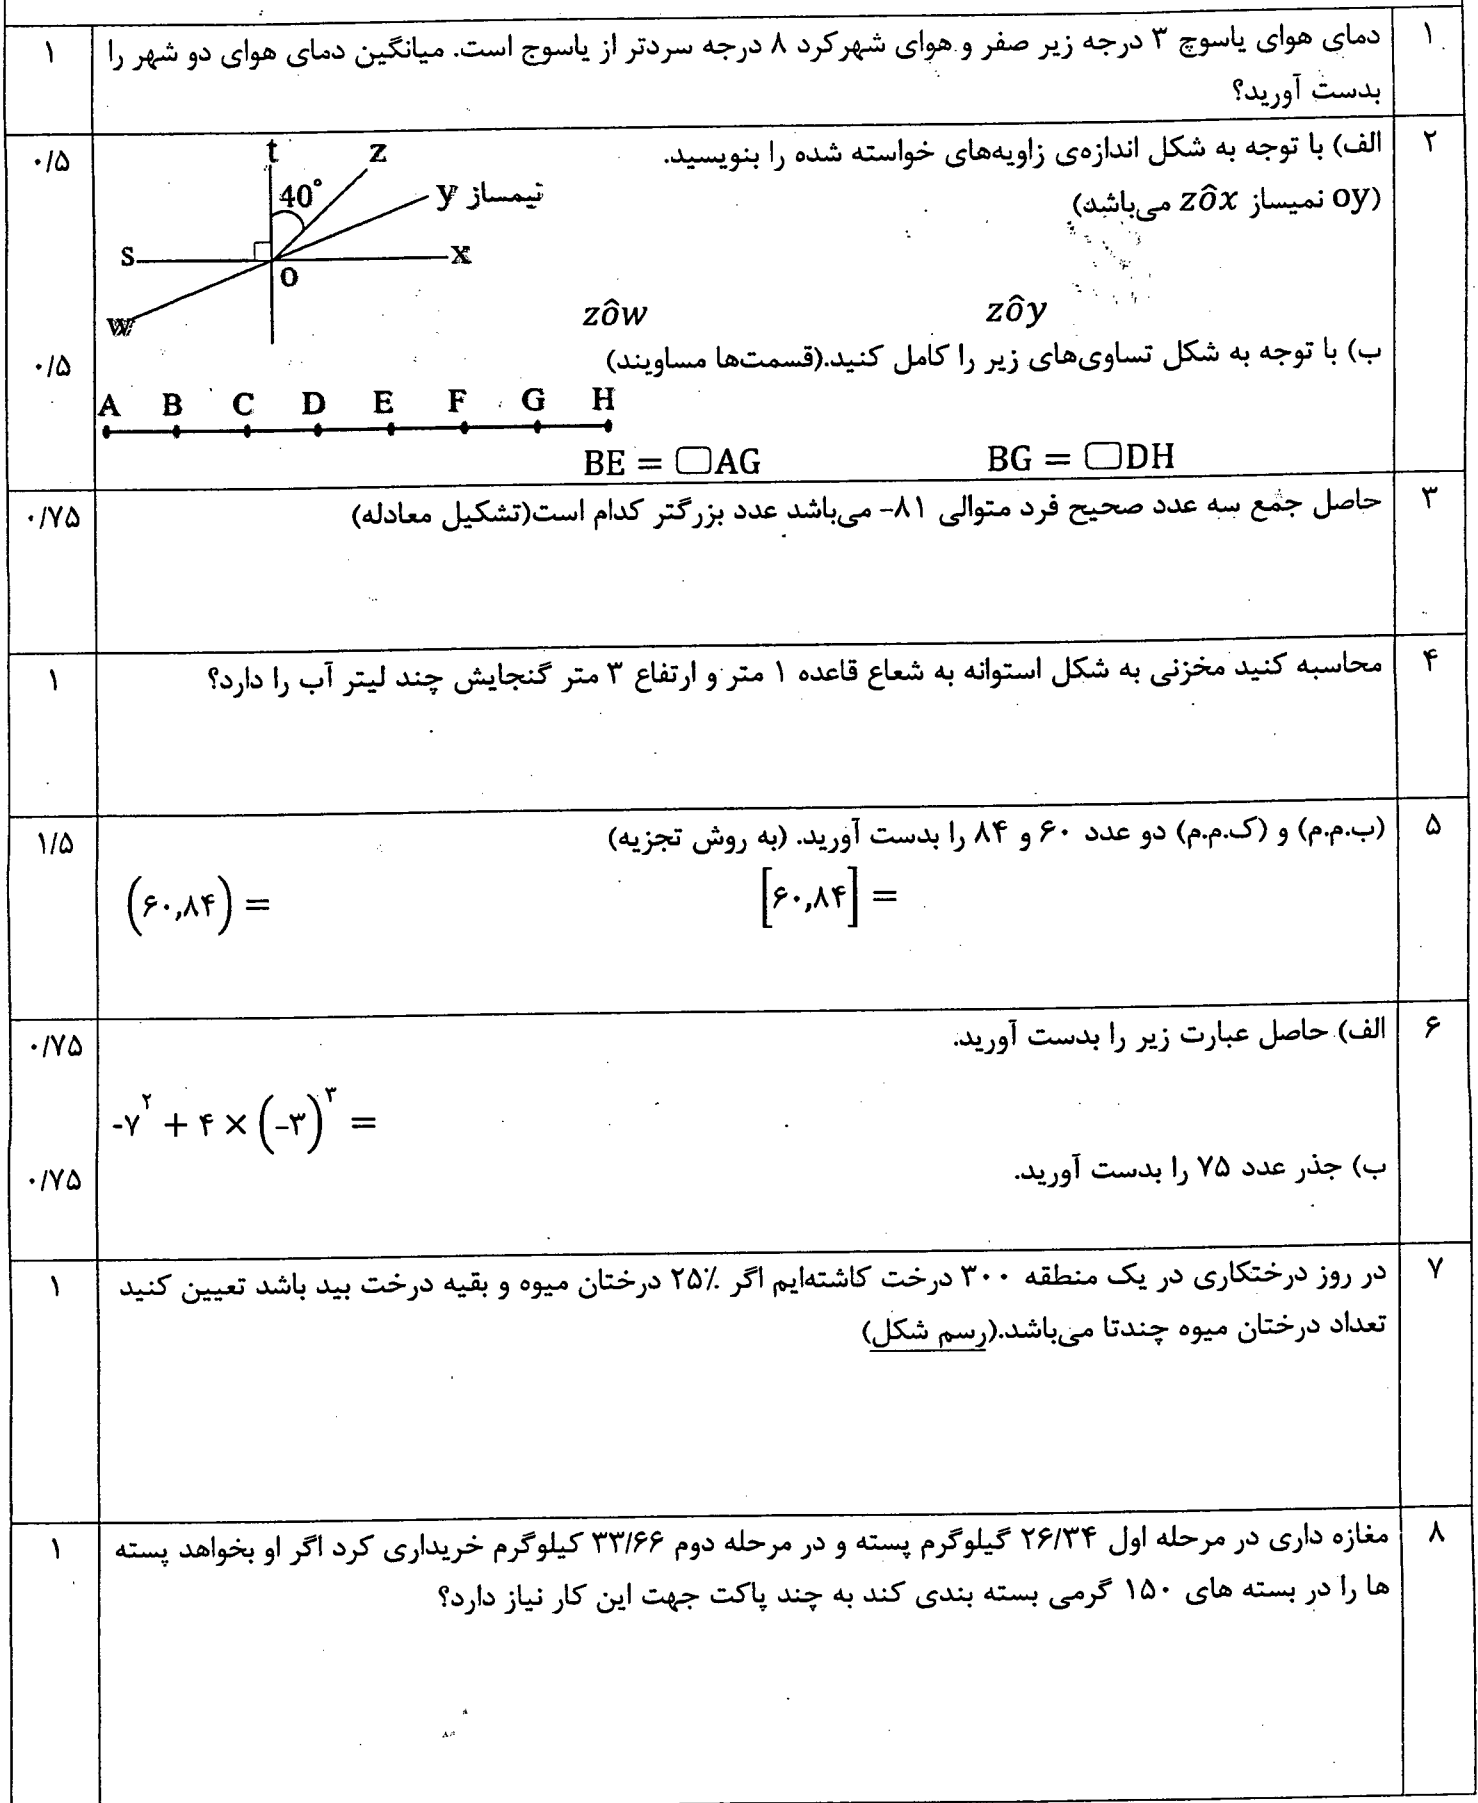 ۱
دمای هوای یاسوج ۳ درجه زیر صفر و هوای شهرکرد ۸ درجه سردتر از یاسوج است. میانگین دمای هوای دو شهر را
۱
بدست آورید؟
۲
الف) با توجه به شکل اندازه‌ی زاویه‌های خواسته شده را بنویسید.
۰/۵
(oy نمیساز zôx می‌باشد)
t
z
40°
y نیمساز
s
x
o
w
zôy
zôw
ب) با توجه به شکل تساوی‌های زیر را کامل کنید.(قسمت‌ها مساویند)
۰/۵
A B C D E F G H
BE = □AG
BG = □DH
۳
حاصل جمع سه عدد صحیح فرد متوالی ۸۱- می‌باشد عدد بزرگتر کدام است(تشکیل معادله)
۰/۷۵
۴
محاسبه کنید مخزنی به شکل استوانه به شعاع قاعده ۱ متر و ارتفاع ۳ متر گنجایش چند لیتر آب را دارد؟
۱
۵
(ب.م.م) و (ک.م.م) دو عدد ۶۰ و ۸۴ را بدست آورید. (به روش تجزیه)
۱/۵
(۶۰,۸۴) =
[۶۰,۸۴] =
۶
الف) حاصل عبارت زیر را بدست آورید.
۰/۷۵
-۷^۲ + ۴ × (-۳)^۳ =
ب) جذر عدد ۷۵ را بدست آورید.
۰/۷۵
۷
در روز درختکاری در یک منطقه ۳۰۰ درخت کاشته‌ایم اگر ۲۵٪ درختان میوه و بقیه درخت بید باشد تعیین کنید
۱
تعداد درختان میوه چندتا می‌باشد.(رسم شکل)
۸
مغازه داری در مرحله اول ۲۶/۳۴ گیلوگرم پسته و در مرحله دوم ۳۳/۶۶ کیلوگرم خریداری کرد اگر او بخواهد پسته
۱
ها را در بسته های ۱۵۰ گرمی بسته بندی کند به چند پاکت جهت این کار نیاز دارد؟